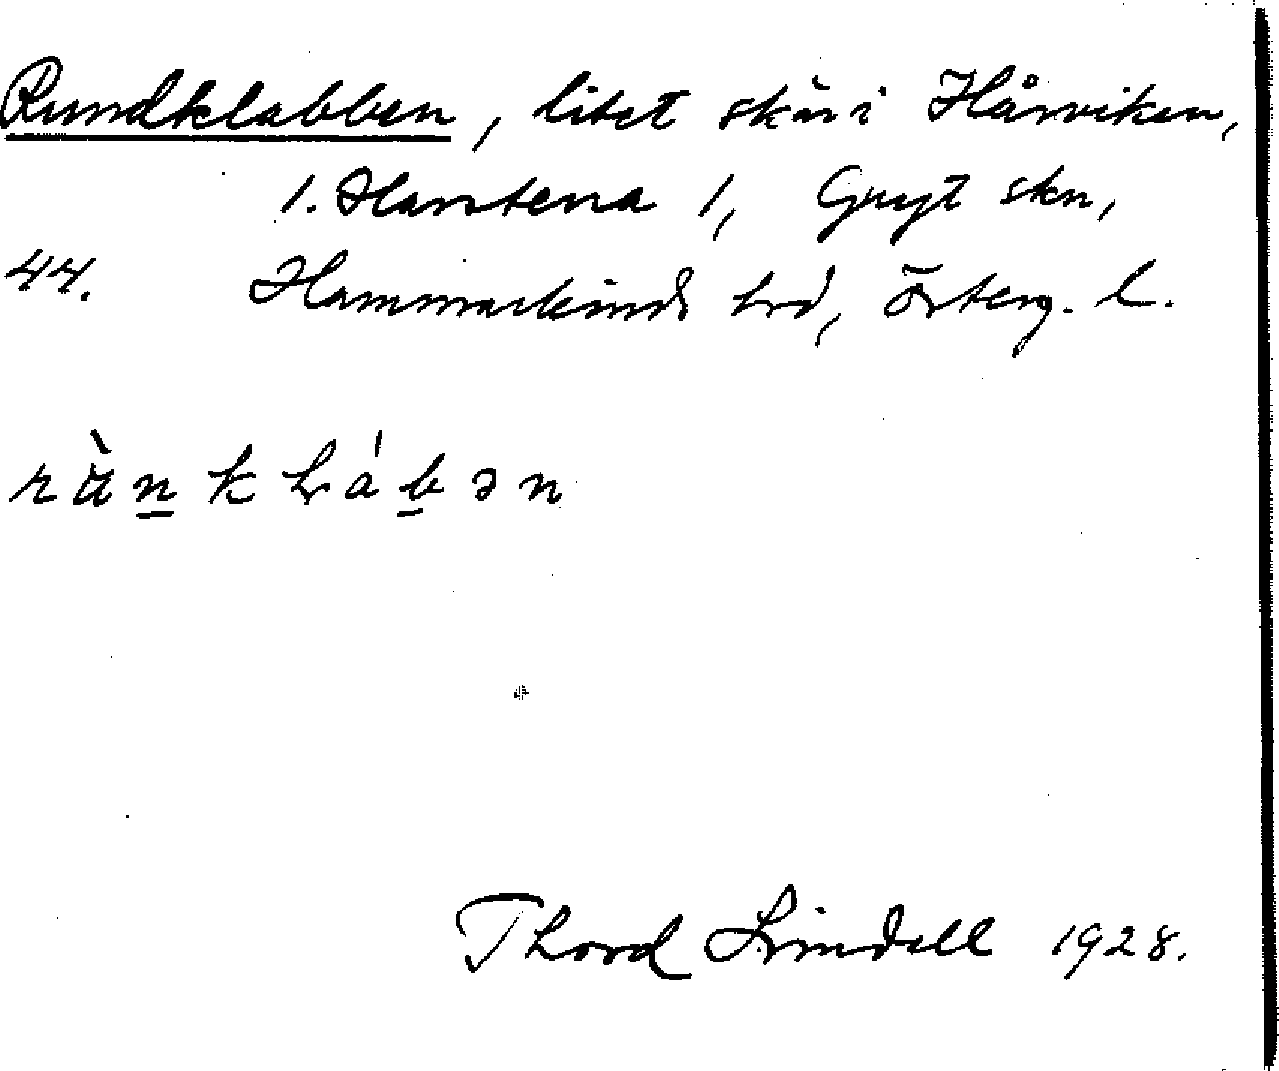 Rundklabben, litet skär i Hårviken,
1. Harstena 1, Gryt skn,
44. Hammarkinds hrd, Österg. l.
rùnklábən
Thord Lindell 1928.